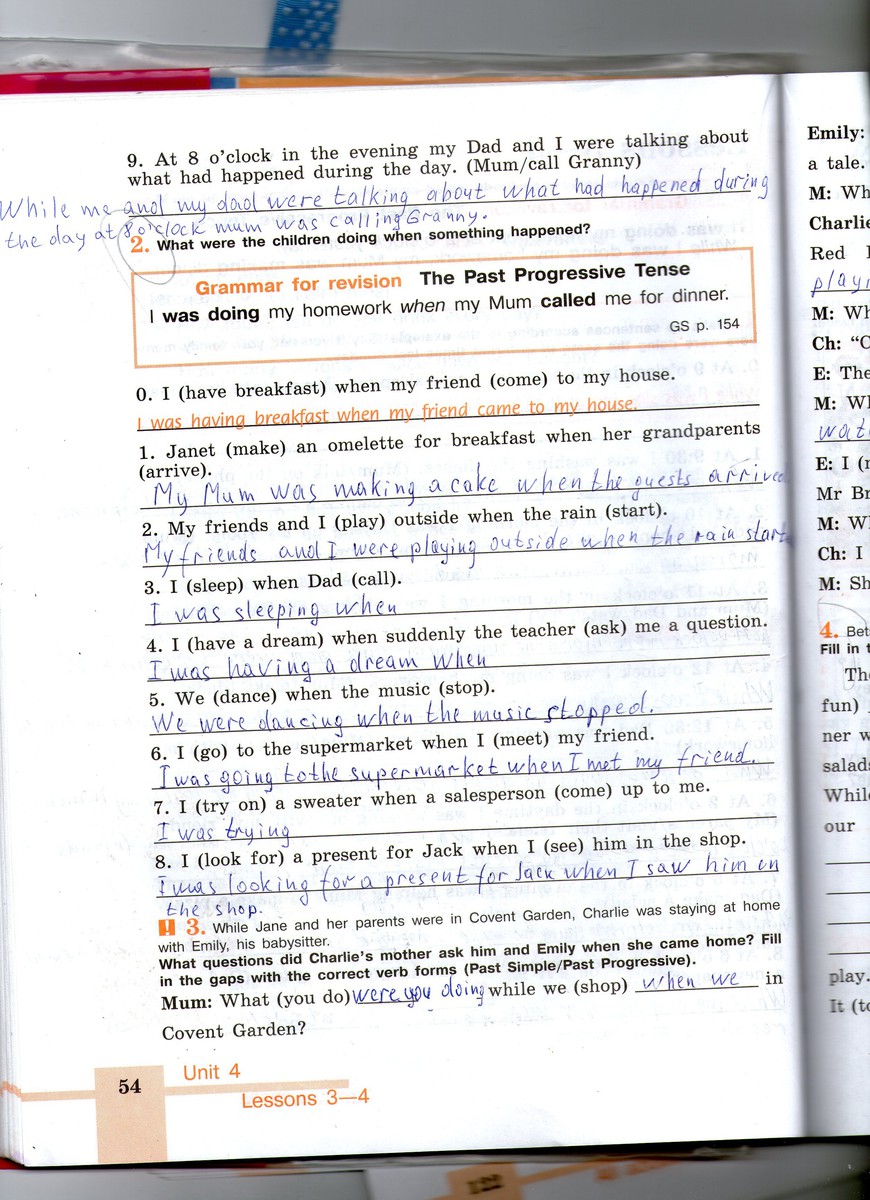 9. At 8 o'clock in the evening my Dad and I were talking about
what had happened during the day. (Mum/call Granny)
While me and my dad were talking about what had happened during
the day at 8 o'clock mum was calling Granny.
2. What were the children doing when something happened?
Grammar for revision The Past Progressive Tense
I was doing my homework when my Mum called me for dinner.
GS p. 154
0. I (have breakfast) when my friend (come) to my house.
I was having breakfast when my friend came to my house.
1. Janet (make) an omelette for breakfast when her grandparents
(arrive).
My Mum was making a cake when the guests arrived
2. My friends and I (play) outside when the rain (start).
My friends and I were playing outside when the rain start
3. I (sleep) when Dad (call).
I was sleeping when
4. I (have a dream) when suddenly the teacher (ask) me a question.
I was having a dream when
5. We (dance) when the music (stop).
We were dancing when the music stopped.
6. I (go) to the supermarket when I (meet) my friend.
I was going to the supermarket when I met my friend.
7. I (try on) a sweater when a salesperson (come) up to me.
I was trying
8. I (look for) a present for Jack when I (see) him in the shop.
I was looking for a present for Jack when I saw him in
the shop.
! 3. While Jane and her parents were in Covent Garden, Charlie was staying at home
with Emily, his babysitter.
What questions did Charlie's mother ask him and Emily when she came home? Fill
in the gaps with the correct verb forms (Past Simple/Past Progressive).
Mum: What (you do) were you doing while we (shop) when we in
Covent Garden?
54
Unit 4
Lessons 3—4
Emily:
a tale.
M: Wh
Charlie
Red
play
M: Wh
Ch: "C
E: The
M: Wh
wat
E: I (
Mr Br
M: Wh
Ch: I
M: Sh
4. Bet
Fill in t
Th
fun)
ner w
salad
While
our
play.
It (to
122